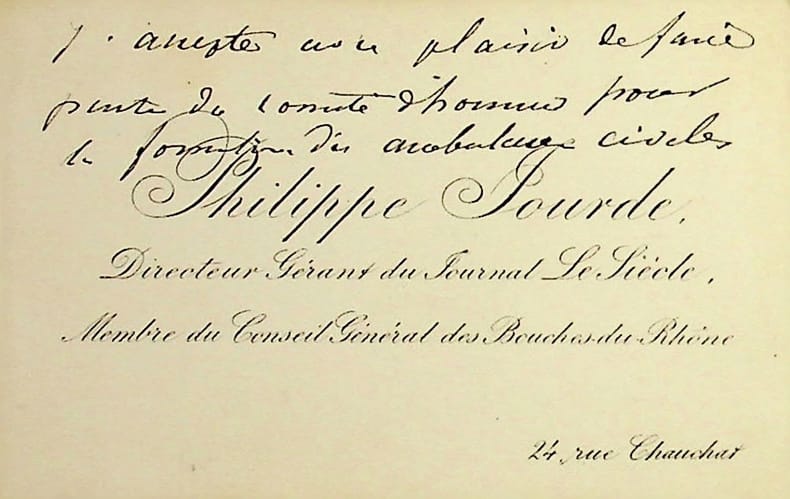 J'accepte avec plaisir de faire
partie du Comité d'honneur pour
la formation des ambulances civiles
Philippe Jourde,
Directeur Gérant du Journal Le Siècle,
Membre du Conseil Général des Bouches-du-Rhône
24, rue Chauchat